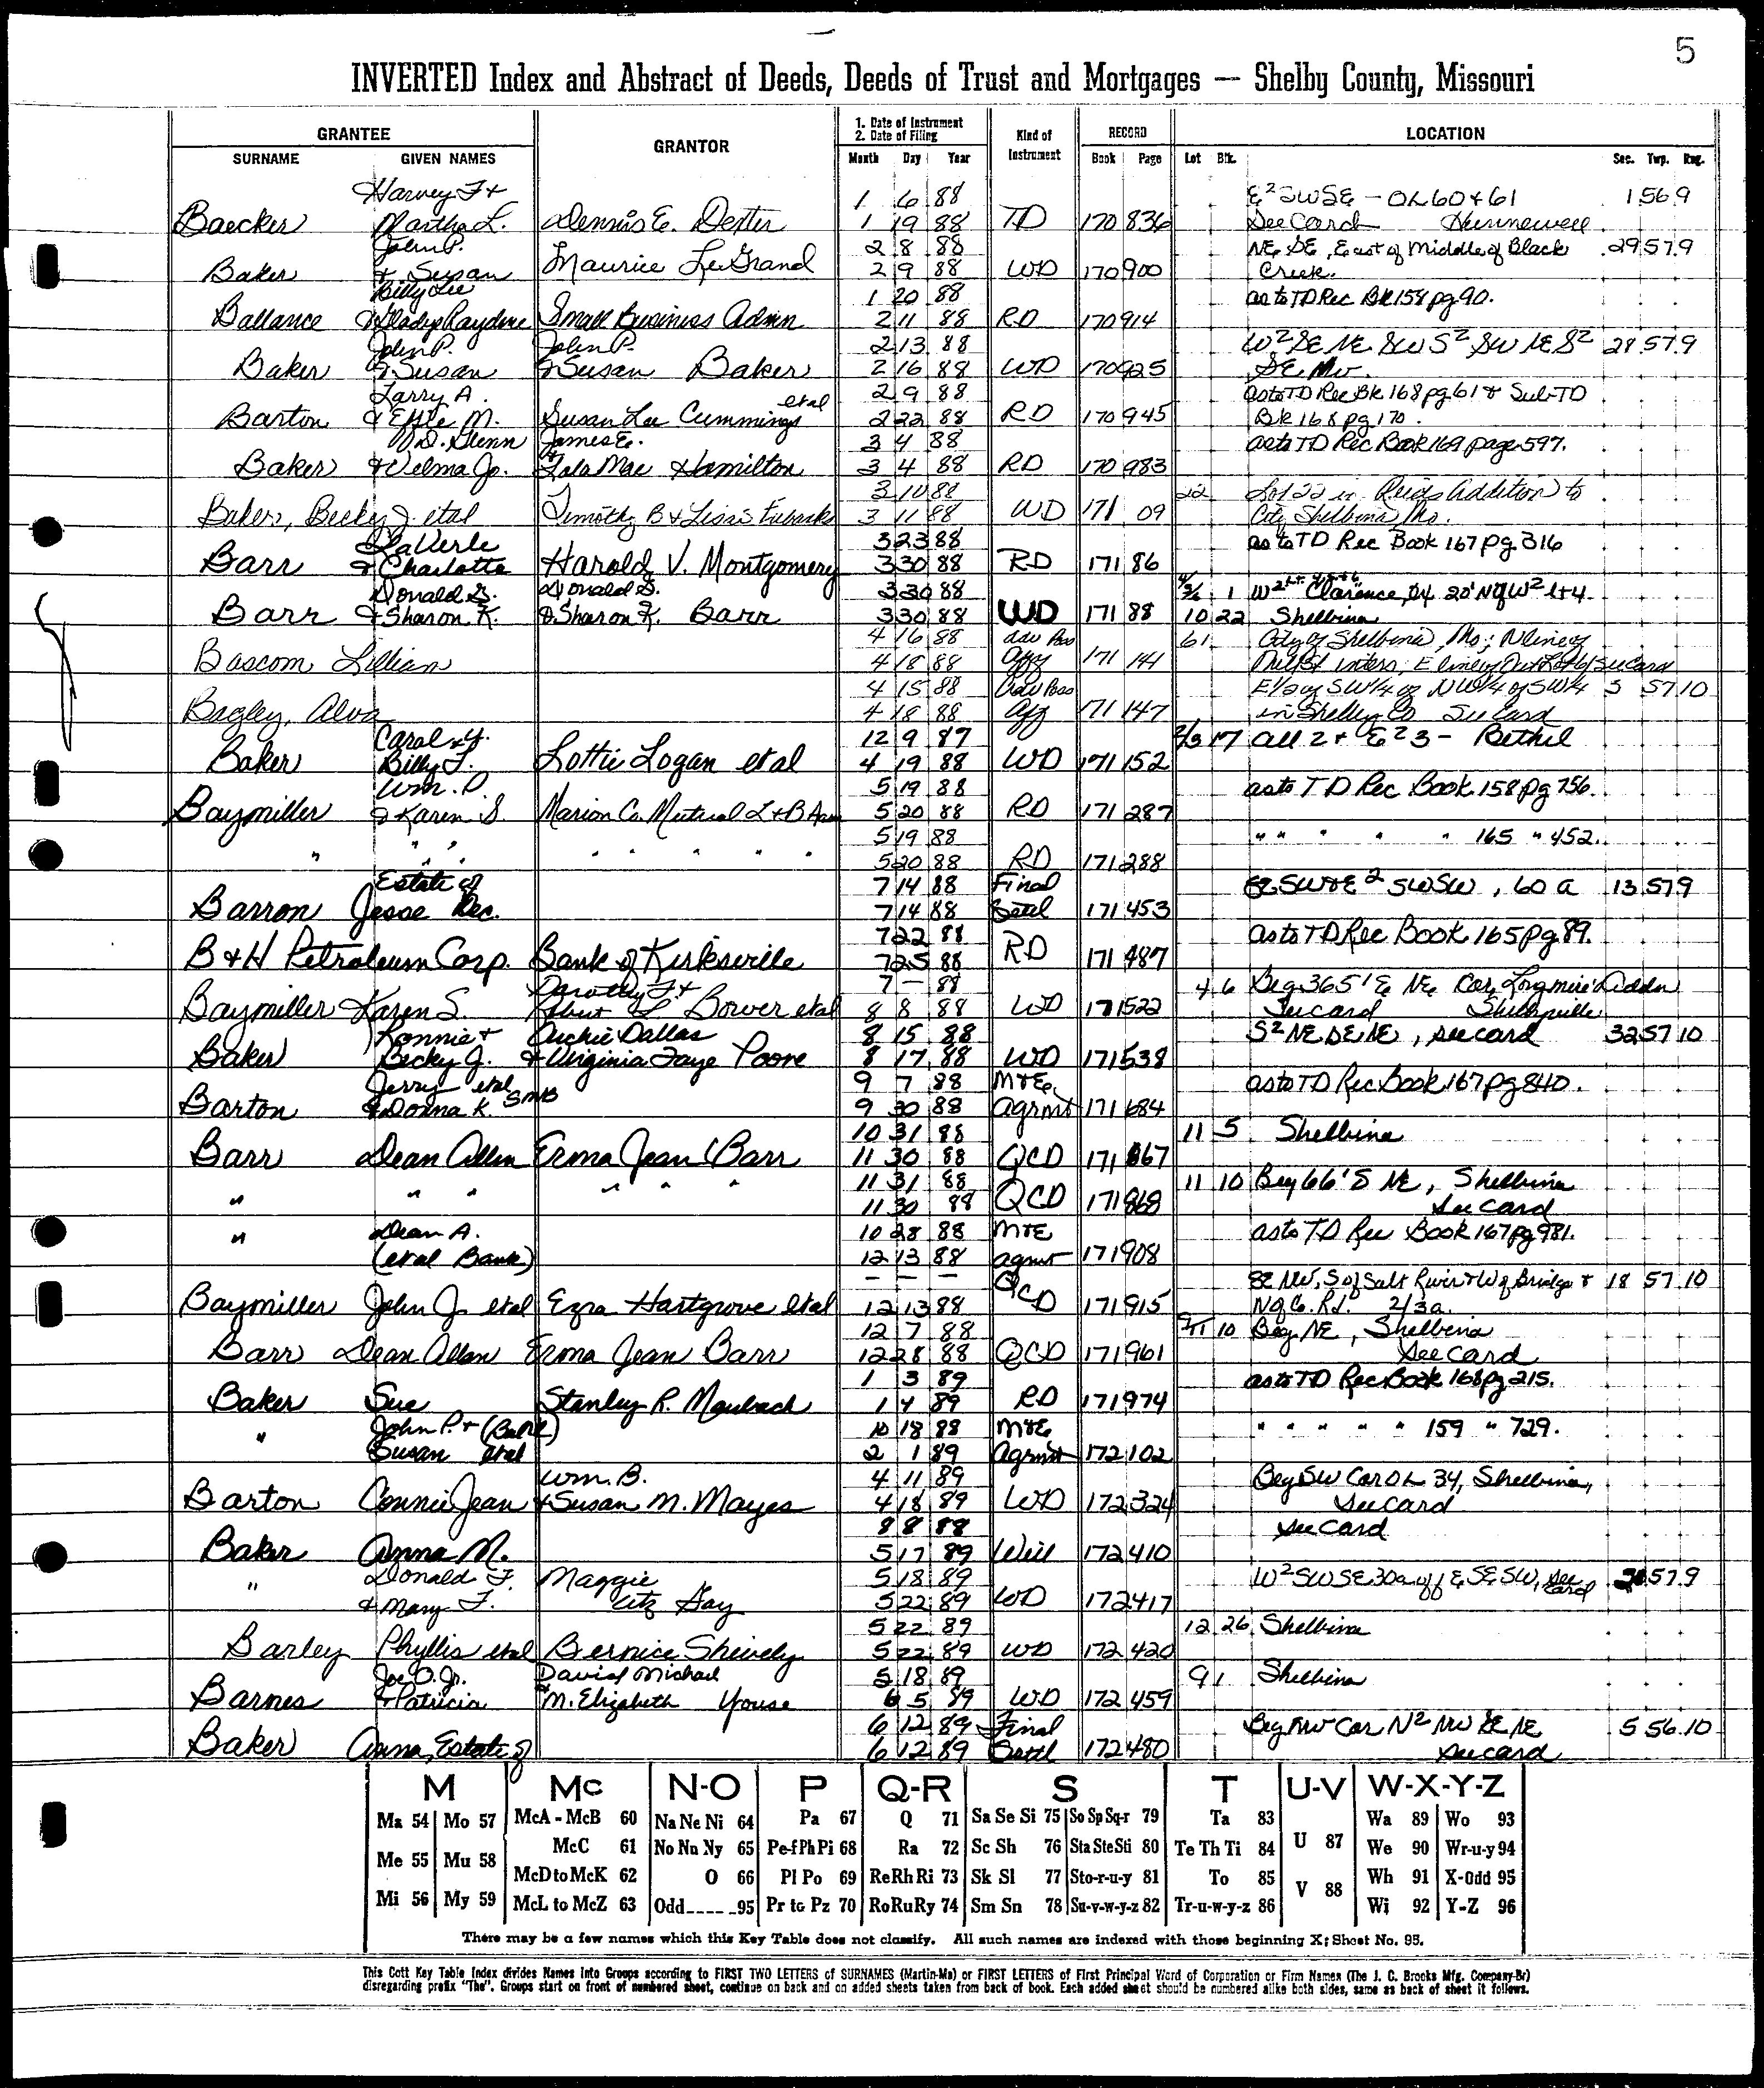 5
INVERTED Index and Abstract of Deeds, Deeds of Trust and Mortgages — Shelby County, Missouri
GRANTEE GRANTOR 1. Date of Instrument 2. Date of Filing Kind of Instrument RECORD LOCATION
SURNAME GIVEN NAMES Month Day Year Book Page Lot Blk. Sec. Twp. Rng.
Harvey F + 1 6 88 E² SWSE - OL 60+61 1 56 9
Baecker Martha L. Dennis E. Dexter 1 19 88 TD 170 836 See Card Hunnewell
John P. 2 8 88 NE SE, East of Middle of Black 29 57 9
Baker + Susan Maurice LeGrand 2 9 88 WD 170 900 Creek.
Billy Lee 1 20 88 as to TD Rec Bk 158 pg 90.
Ballance & Gladys Raydene Small Business Admn 2 11 88 RD 170 914
John P. John P. 2 13 88 W² SE NE SW S² SW NE S² 28 57 9
Baker & Susan & Susan Baker 2 16 88 WD 170 925 SE NW.
Larry A. etal 2 9 88 as to TD Rec Bk 168 pg 61 & Sub TD
Barton & Effie M. Susan Lee Cummings 2 22 88 RD 170 945 Bk 168 pg 170.
Glenn James E. 3 4 88 as to TD Rec Book 169 page 597.
Baker & Velma Jo. & Lola Mae Hamilton 3 4 88 RD 170 983
3 10 88 22 Lot 22 in Reids Addition to
Baker, Becky J. etal Timothy B & Lisa S Eubanks 3 11 88 WD 171 09 City Shelbina Mo.
LaVerle 3 23 88 as to TD Rec Book 167 pg 316
Barr & Charlotte Harold V. Montgomery 3 30 88 RD 171 86
Donald G. Donald G. 3 30 88 1 W² Clarence, 20' N of W² lt 4
Barr & Sharon K. & Sharon K. Barr 3 30 88 WD 171 88 10 22 Shelbina
4 16 88 Adv Pos 61 City of Shelbina, Mo; N line of
Bascom Lillian 4 18 88 Aff 171 141 inters, E line of Out Lot 61 See Card
4 15 88 Adv Poss E 1/2 of SW 1/4 of NW 1/4 of SW 1/4 3 57 10
Bagley, Alva 4 18 88 Aff 171 147 in Shelby Co See Card
Carol Y. 12 9 87 2/3 17 All 2 + E² 3 - Bethel
Baker Billy F. Lottie Logan etal 4 19 88 WD 171 152
Wm. D. 5 19 88 as to TD Rec Book 158 pg 756.
Baymiller & Karen S. Marion Co. Mutual L + B Assn 5 20 88 RD 171 287
5 19 88 " " " " " 165 " 452.
" " " " " " " " 5 20 88 RD 171 288
Estate of 7 14 88 Final E² SW & E² SWSW, 60 a 13 57 9
Barron Jesse Dec. 7 14 88 Settl 171 453
7 22 88 as to TD Rec Book 165 pg 89.
B & H Petroleum Corp. Bank of Kirksville 7 25 88 RD 171 487
Dorothy F + 7 — 88 4 6 Beg 365' E NE Cor, Longmire Addn
Baymiller Karen S. Robert L Bower etal 8 8 88 WD 171 522 See card Shelbyville
Ronnie + Archie Dallas 8 15 88 S² NE SE NE, see card 32 57 10
Baker Becky J. & Virginia Faye Poore 8 17 88 WD 171 538
Jerry etal SMB 9 7 88 M&E as to TD Rec Book 167 pg 840.
Barton & Donna K. 9 30 88 agrmt 171 684
10 31 88 11 5 Shelbina
Barr Dean Allen Erma Jean Barr 11 30 88 QCD 171 867
11 31 88 11 10 Beg 66' S NE, Shelbina
" " " " " " 11 30 88 QCD 171 868 See card
" Dean A. 10 28 88 M&E as to TD Rec Book 167 pg 981.
(etal Bank) 12 13 88 agmt 171 908
— — — SE NW, S of Salt River & W of Bridge & 18 57 10
Baymiller John J. etal Ezra Hartgrove etal 12 13 88 QCD 171 915 N of Co. Rd. 2/3 a.
12 7 88 9/11 10 Beg. NE, Shelbina
Barr Dean Allen Erma Jean Barr 12 28 88 QCD 171 961 See Card
1 3 89 as to TD Rec Book 168 pg 215.
Baker Sue Stanley R. Maubach 1 4 89 RD 171 974
" John P. + 10 18 88 M&E " " " " " 159 " 729.
Susan etal 2 1 89 Agrmt 172 102
Wm. B. 4 11 89 Beg SW Cor OL 34, Shelbina,
Barton Connie Jean & Susan M. Mayes 4 18 89 WD 172 324 See card
8 8 88 See Card
Baker Anna M. 5 17 89 Will 172 410
" Donald F. Maggie 5 18 89 W² SW SE 30a off E SE SW, see card 57 9
& Mary F. Gay 5 22 89 WD 172 417
5 22 89 12 26 Shelbina
Barley Phyllis etal Bernice Shively 5 22 89 WD 172 420
Joe O. Jr. David Michael 5 18 89 9 1 Shelbina
Barnes & Patricia & M. Elizabeth Youse 6 5 89 WD 172 459
6 12 89 Final Beg NW Cor N² NW SE NE 5 56 10
Baker Anna, Estate of 6 12 89 Settl 172 480 See card
M Mc N-O P Q-R S T U-V W-X-Y-Z
Ma 54 Mo 57 McA - McB 60 Na Ne Ni 64 Pa 67 Q 71 Sa Se Si 75 So Sp Sq-r 79 Ta 83 Wa 89 Wo 93
McC 61 No Nu Ny 65 Pe-f Ph Pi 68 Ra 72 Sc Sh 76 Sta Ste Sti 80 Te Th Ti 84 U 87 We 90 Wr-u-y 94
Me 55 Mu 58 McD to McK 62 O 66 Pl Po 69 Re Rh Ri 73 Sk Sl 77 Sto-r-u-y 81 To 85 V 88 Wh 91 X-Odd 95
Mi 56 My 59 McL to McZ 63 Odd____95 Pr to Pz 70 Ro Ru Ry 74 Sm Sn 78 Su-v-w-y-z 82 Tr-u-w-y-z 86 Wi 92 Y-Z 96
There may be a few names which this Key Table does not classify. All such names are indexed with those beginning X; Sheet No. 95.
This Cott Key Table Index divides Names into Groups according to FIRST TWO LETTERS of SURNAMES (Martin-Ma) or FIRST LETTERS of First Principal Word of Corporation or Firm Names (The J. C. Brooks Mfg. Company-Br)
disregarding prefix "The". Groups start on front of numbered sheet, continue on back and on added sheets taken from back of book. Each added sheet should be numbered alike both sides, same as back of sheet it follows.